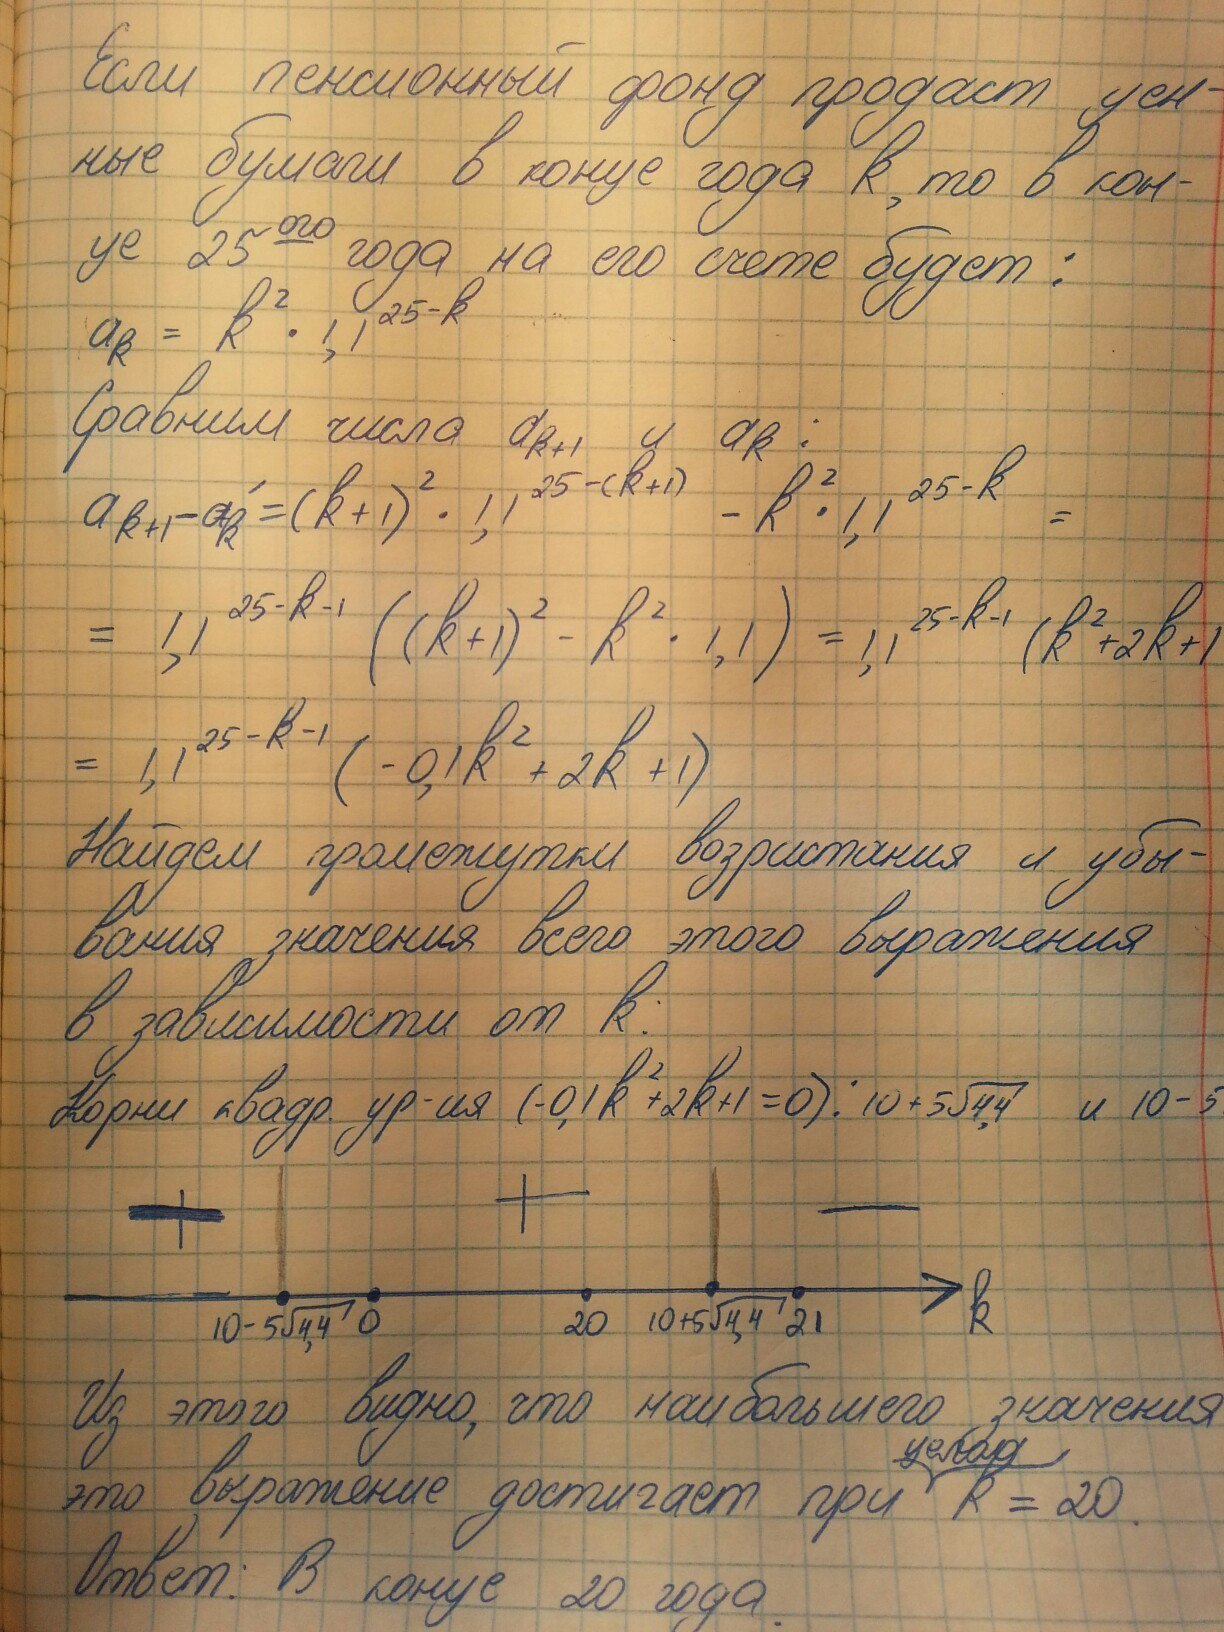 Если пенсионный фонд продаст цен-
ные бумаги в конце года k, то в кон-
це 25ого года на его счете будет:
aₖ = k² · 1,1^(25-k)
Сравним числа aₖ₊₁ и aₖ:
aₖ₊₁ - aₖ = (k+1)² · 1,1^(25-(k+1)) - k² · 1,1^(25-k) =
= 1,1^(25-k-1) ((k+1)² - k² · 1,1) = 1,1^(25-k-1) (k²+2k+1
= 1,1^(25-k-1) (-0,1k² + 2k + 1)
Найдем промежутки возристания и убы-
вания значения всего этого выражения
в зависимости от k:
Корни квадр. ур-ия (-0,1k²+2k+1=0): 10+5√4,4 и 10-5
+ + —
10-5√4,4 0 20 10+5√4,4 21 k
Из этого видно, что наибольшего значения
это выражение достигает при k = 20.
Ответ: В конце 20 года.